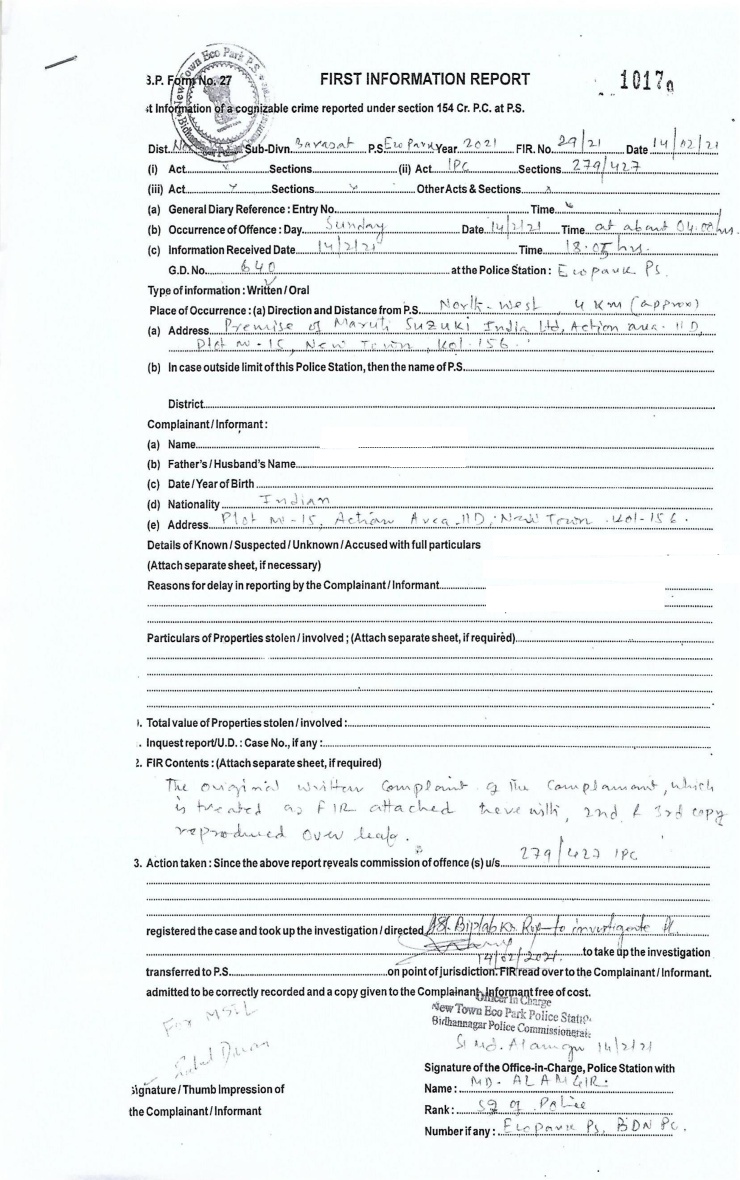 New Town Eco Park P.S.
3.P. Form No. 27 FIRST INFORMATION REPORT 1017
t Information of a cognizable crime reported under section 154 Cr. P.C. at P.S.
Dist. Sub-Divn. Barasat P.S Eco Park Year 2021 FIR. No. 29/21 Date 14/02/21
(i) Act x Sections (ii) Act IPC Sections 279/427
(iii) Act x Sections x Other Acts & Sections x
(a) General Diary Reference : Entry No. Time x
(b) Occurrence of Offence : Day Sunday Date 14/2/21 Time at about 04:00 hrs.
(c) Information Received Date 14/2/21 Time 18.05 hrs.
G.D. No. 640 at the Police Station : Ecopark Ps.
Type of information : Written / Oral
Place of Occurrence : (a) Direction and Distance from P.S. North-West 4 KM (approx)
(a) Address Premise of Maruti Suzuki India Ltd, Action area - IID,
Plot no - 15, New Town, Kol-156.
(b) In case outside limit of this Police Station, then the name of P.S.
District
Complainant / Informant :
(a) Name
(b) Father's / Husband's Name
(c) Date / Year of Birth
(d) Nationality Indian
(e) Address Plot no-15, Action Area IID, New Town Kol-156.
Details of Known / Suspected / Unknown / Accused with full particulars
(Attach separate sheet, if necessary)
Reasons for delay in reporting by the Complainant / Informant
Particulars of Properties stolen / involved ; (Attach separate sheet, if required)
). Total value of Properties stolen / involved :
. Inquest report/U.D. : Case No., if any :
2. FIR Contents : (Attach separate sheet, if required)
The original written complaint of the complainant, which
is treated as FIR attached herewith, 2nd & 3rd copy
reproduced over leaf.
3. Action taken : Since the above report reveals commission of offence (s) u/s. 279/427 IPC
registered the case and took up the investigation / directed ASI Biplab Kr. Roy to investigate
14/02/2021. to take up the investigation
transferred to P.S. on point of jurisdiction. FIR read over to the Complainant / Informant.
admitted to be correctly recorded and a copy given to the Complainant, Informant free of cost.
Officer In Charge
New Town Eco Park Police Statio
Bidhannagar Police Commissionerate
For MSIL
SI Md. Alamgir 14/2/21
Signature of the Office-in-Charge, Police Station with
Signature / Thumb Impression of
the Complainant / Informant
Name : MD. ALAMGIR.
Rank : SI of Police
Number if any : Ecopark Ps, BDN PC.